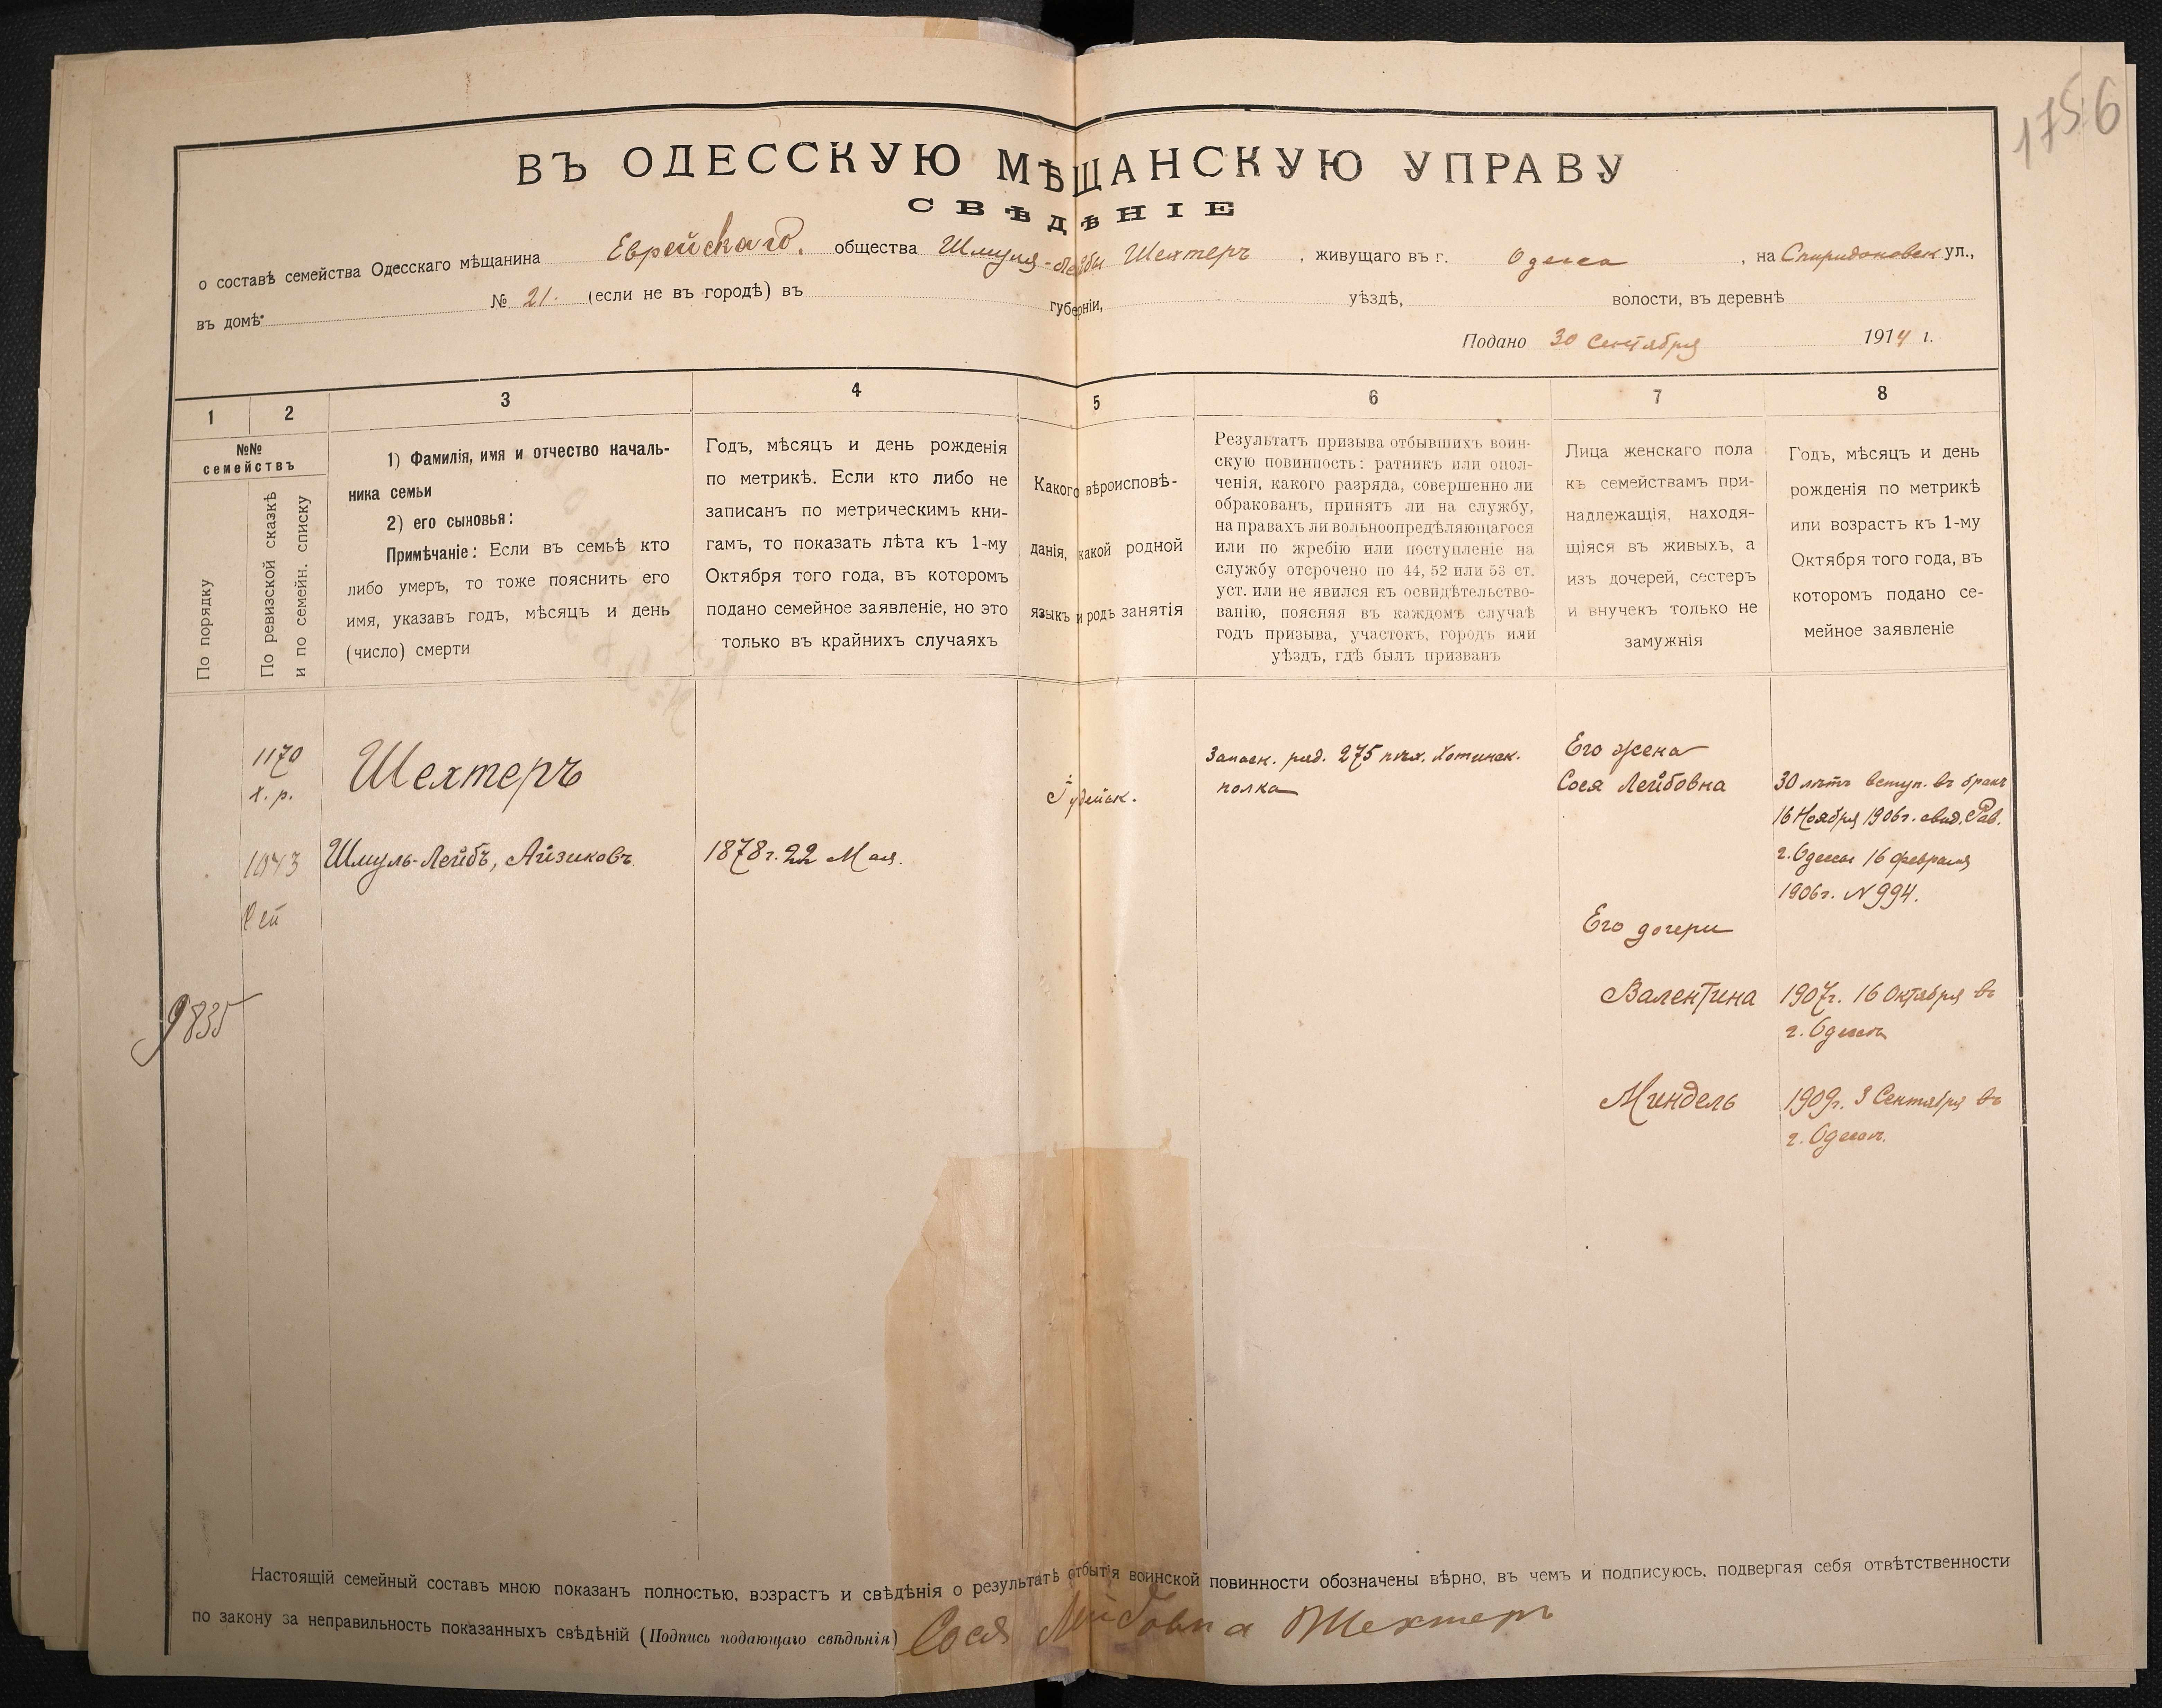 1756
ВЪ ОДЕССКУЮ МѢЩАНСКУЮ УПРАВУ
СВѢДѢНІЕ
о составѣ семейства Одесскаго мѣщанина Еврейскаго общества Шмуля-Лейбы Шехтеръ, живущаго въ г. Одесса, на Спиридоновск ул.,
въ домѣ № 21. (если не въ городѣ) въ губерніи, уѣздѣ, волости, въ деревнѣ
Подано 30 Сентября 1914 г.
1
2
3
4
5
6
7
8
№№
семействъ
По порядку
По ревизской сказкѣ
и по семейн. списку
1) Фамилія, имя и отчество началь-
ника семьи
2) его сыновья:
Примѣчаніе: Если въ семьѣ кто
либо умеръ, то тоже пояснить его
имя, указавъ годъ, мѣсяцъ и день
(число) смерти
Годъ, мѣсяцъ и день рожденія
по метрикѣ. Если кто либо не
записанъ по метрическимъ кни-
гамъ, то показать лѣта къ 1-му
Октября того года, въ которомъ
подано семейное заявленіе, но это
только въ крайнихъ случаяхъ
Какого вѣроисповѣ-
данія, какой родной
языкъ и родъ занятія
Результатъ призыва отбывшихъ воин-
скую повинность: ратникъ или опол-
ченія, какого разряда, совершенно ли
обракованъ, принятъ ли на службу,
на правахъ ли вольноопредѣляющагося
или по жребію или поступленіе на
службу отсрочено по 44, 52 или 53 ст.
уст. или не явился къ освидѣтельство-
ванію, поясняя въ каждомъ случаѣ
годъ призыва, участокъ, городъ или
уѣздъ, гдѣ былъ призванъ
Лица женскаго пола
къ семействамъ при-
надлежащія, находя-
щіяся въ живыхъ, а
изъ дочерей, сестеръ
и внучекъ только не
замужнія
Годъ, мѣсяцъ и день
рожденія по метрикѣ
или возрастъ къ 1-му
Октября того года, въ
которомъ подано се-
мейное заявленіе
1170
х. р.
Шехтеръ
1043
Шмуль-Лейбъ, Айзиковъ
1878 г. 22 Мая.
Іудейск.
Запасн. ряд. 275 пѣх. Хотинск.
полка
Его жена
Сося Лейбовна
30 лѣтъ вступ. въ бракъ
16 Ноября 1906г. свид. Рав.
г. Одессы 16 февраля
1906г. N 994.
Его дочери
9835
Валентина
1907г. 16 Октября въ
г. Одессѣ
Миндель
1909г. 3 Сентября въ
г. Одессѣ.
Настоящій семейный составъ мною показанъ полностью, возрастъ и свѣдѣнія о результатѣ отбытія воинской повинности обозначены вѣрно, въ чемъ и подписуюсь, подвергая себя отвѣтственности
по закону за неправильность показанныхъ свѣдѣній (Подпись подающаго свѣдѣнія) Сося Лейбовна Шехтеръ